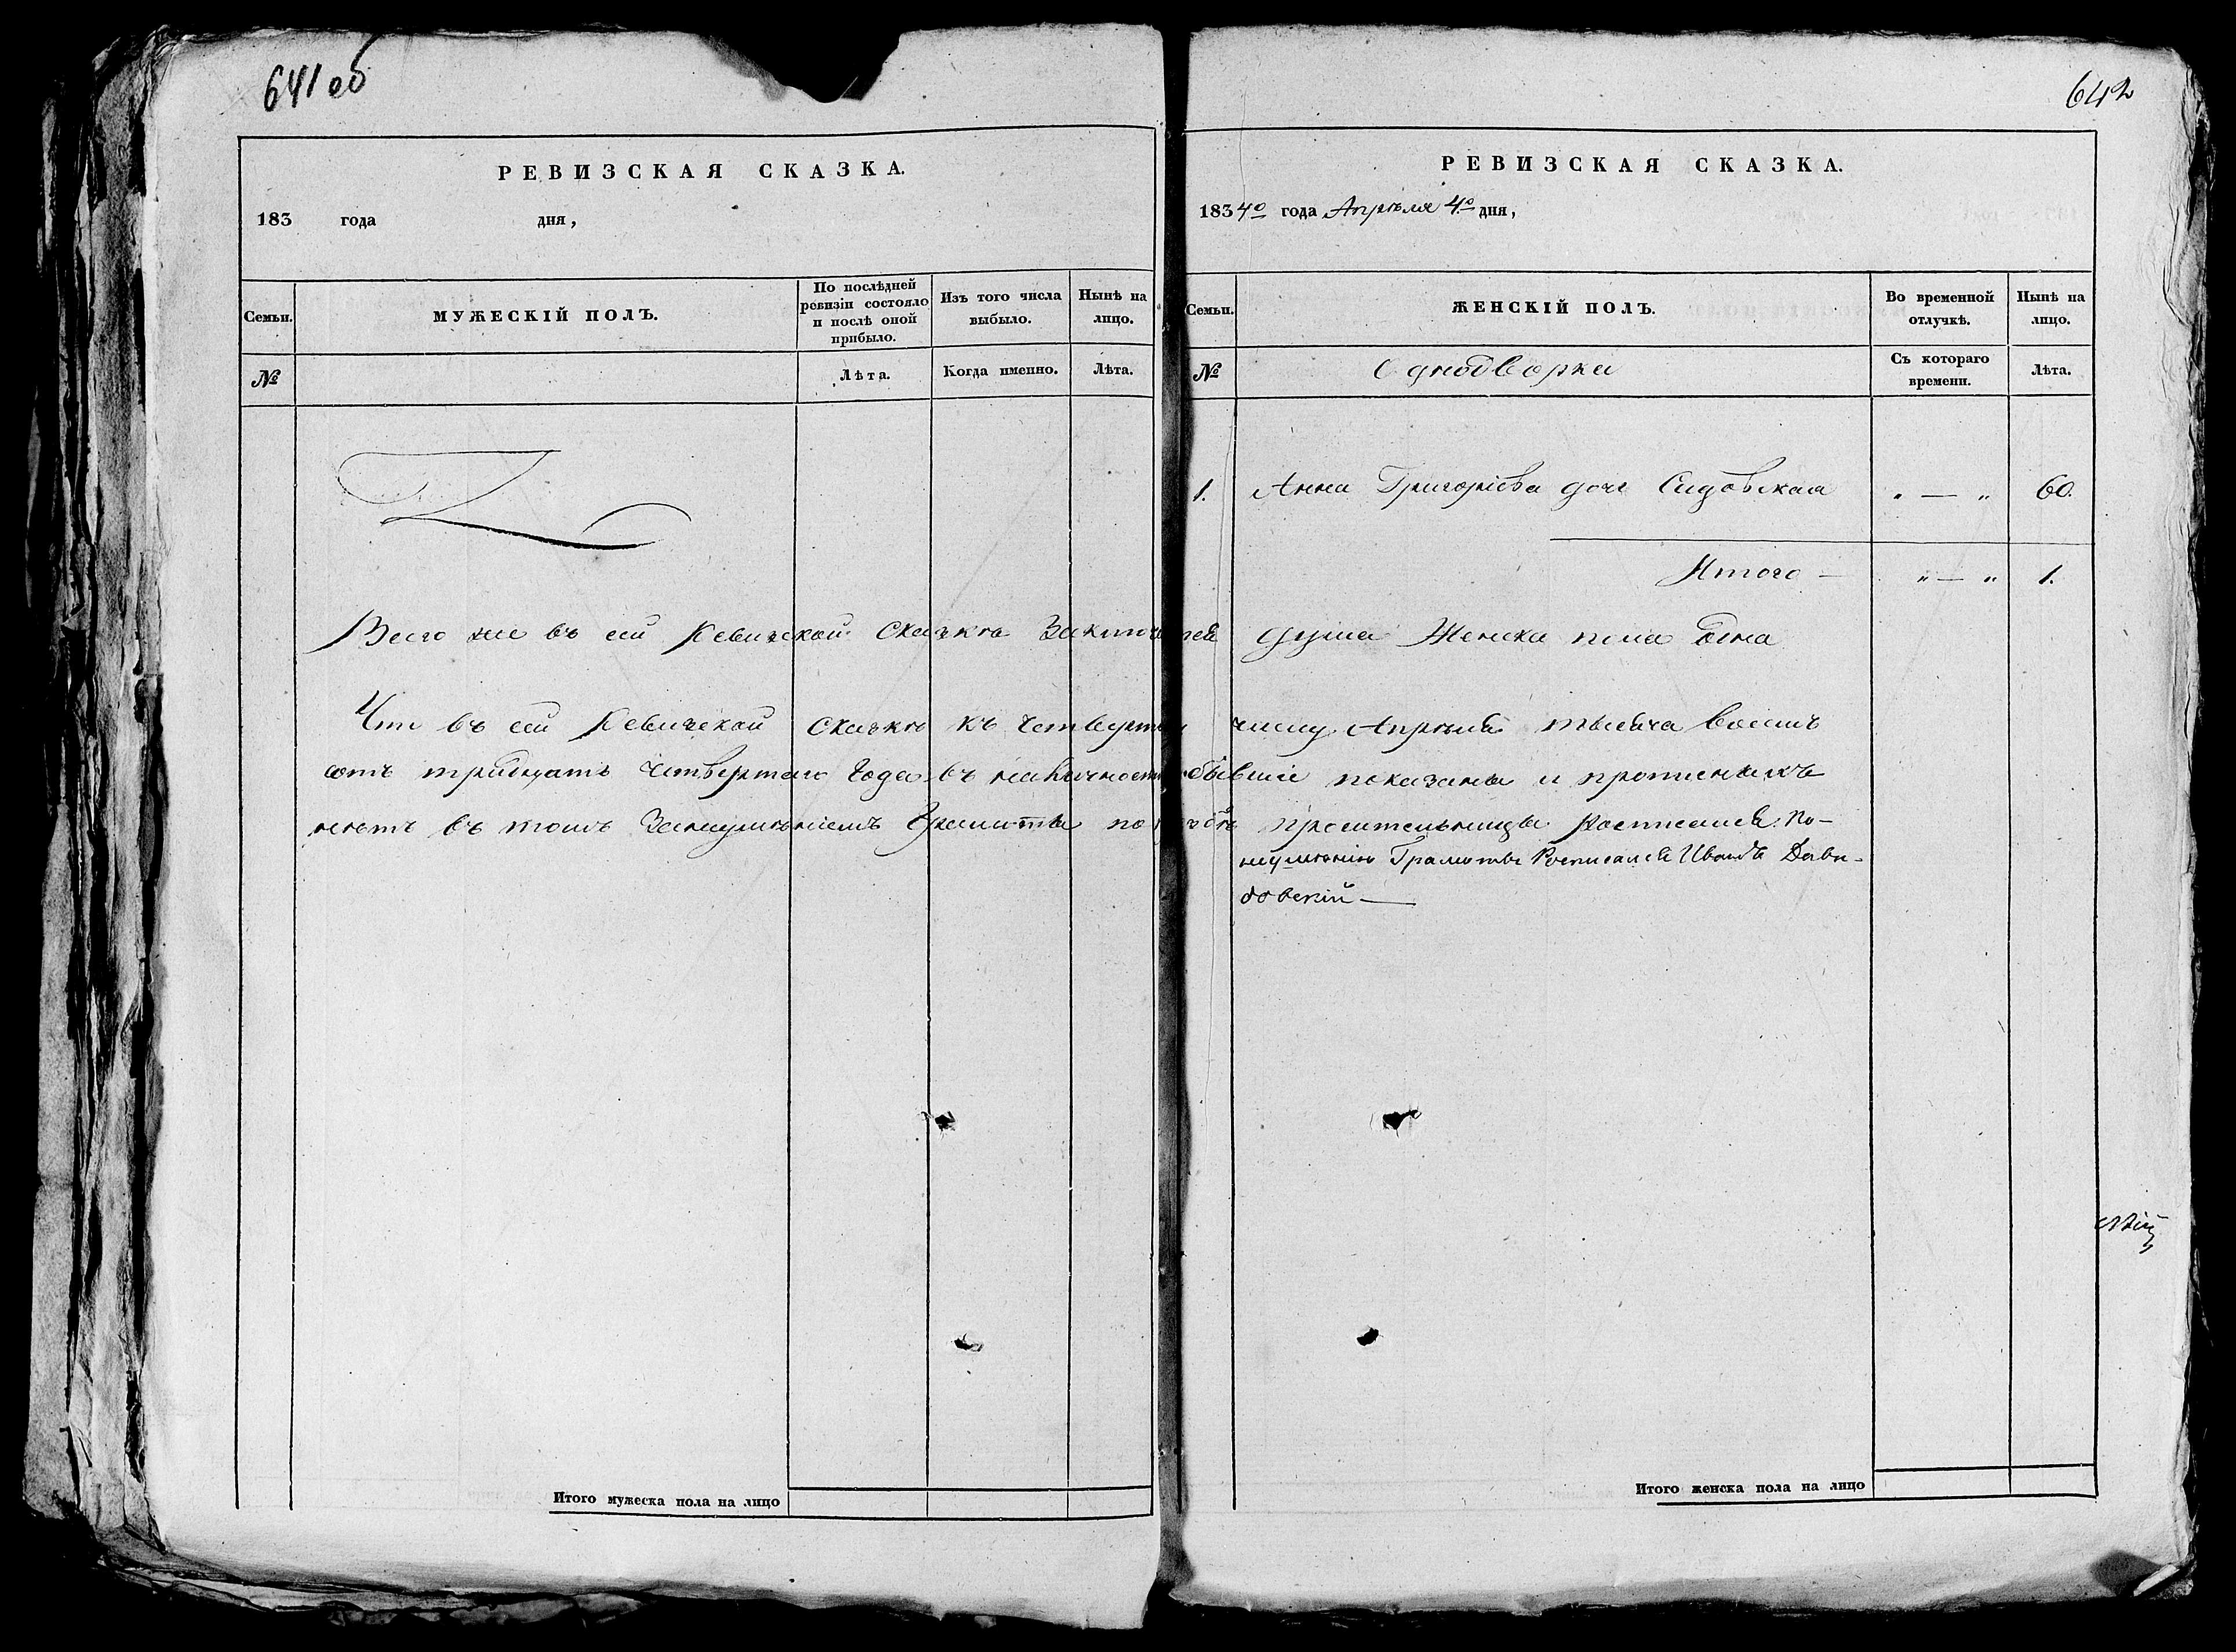 641 об
РЕВИЗСКАЯ СКАЗКА.
183 года дня,
Семьи.
МУЖЕСКІЙ ПОЛЪ.
По послѣдней ревизіи состояло и послѣ оной прибыло.
Изъ того числа выбыло.
Нынѣ на лицо.
№
Лѣта.
Когда именно.
Лѣта.
Итого мужеска пола на лицо
642
РЕВИЗСКАЯ СКАЗКА.
1834го года Апрѣля 4го дня,
Семьи.
ЖЕНСКІЙ ПОЛЪ.
Во временной отлучкѣ.
Нынѣ на лицо.
№
Однодворки
Съ котораго времени.
Лѣта.
1. Анна Григорiева дочь Садовская „ — „ 60.
Итого — „ — „ 1.
Всего же въ сей Ревизской Сказкѣ Заключ душа Женска пола одна
Что въ сей Ревизской Сказкѣ къ четверт числу Апрѣля тысяча восемь
сотъ тридцать четвертаго Года въ наличности бывшіе показаны и
нетъ въ томъ Занеумѣніемъ Грамоты по прозьбѣ просительницы Росписался: По
неумѣнію Грамоты Росписался Иванъ Дави-
довскій —
Итого женска пола на лицо